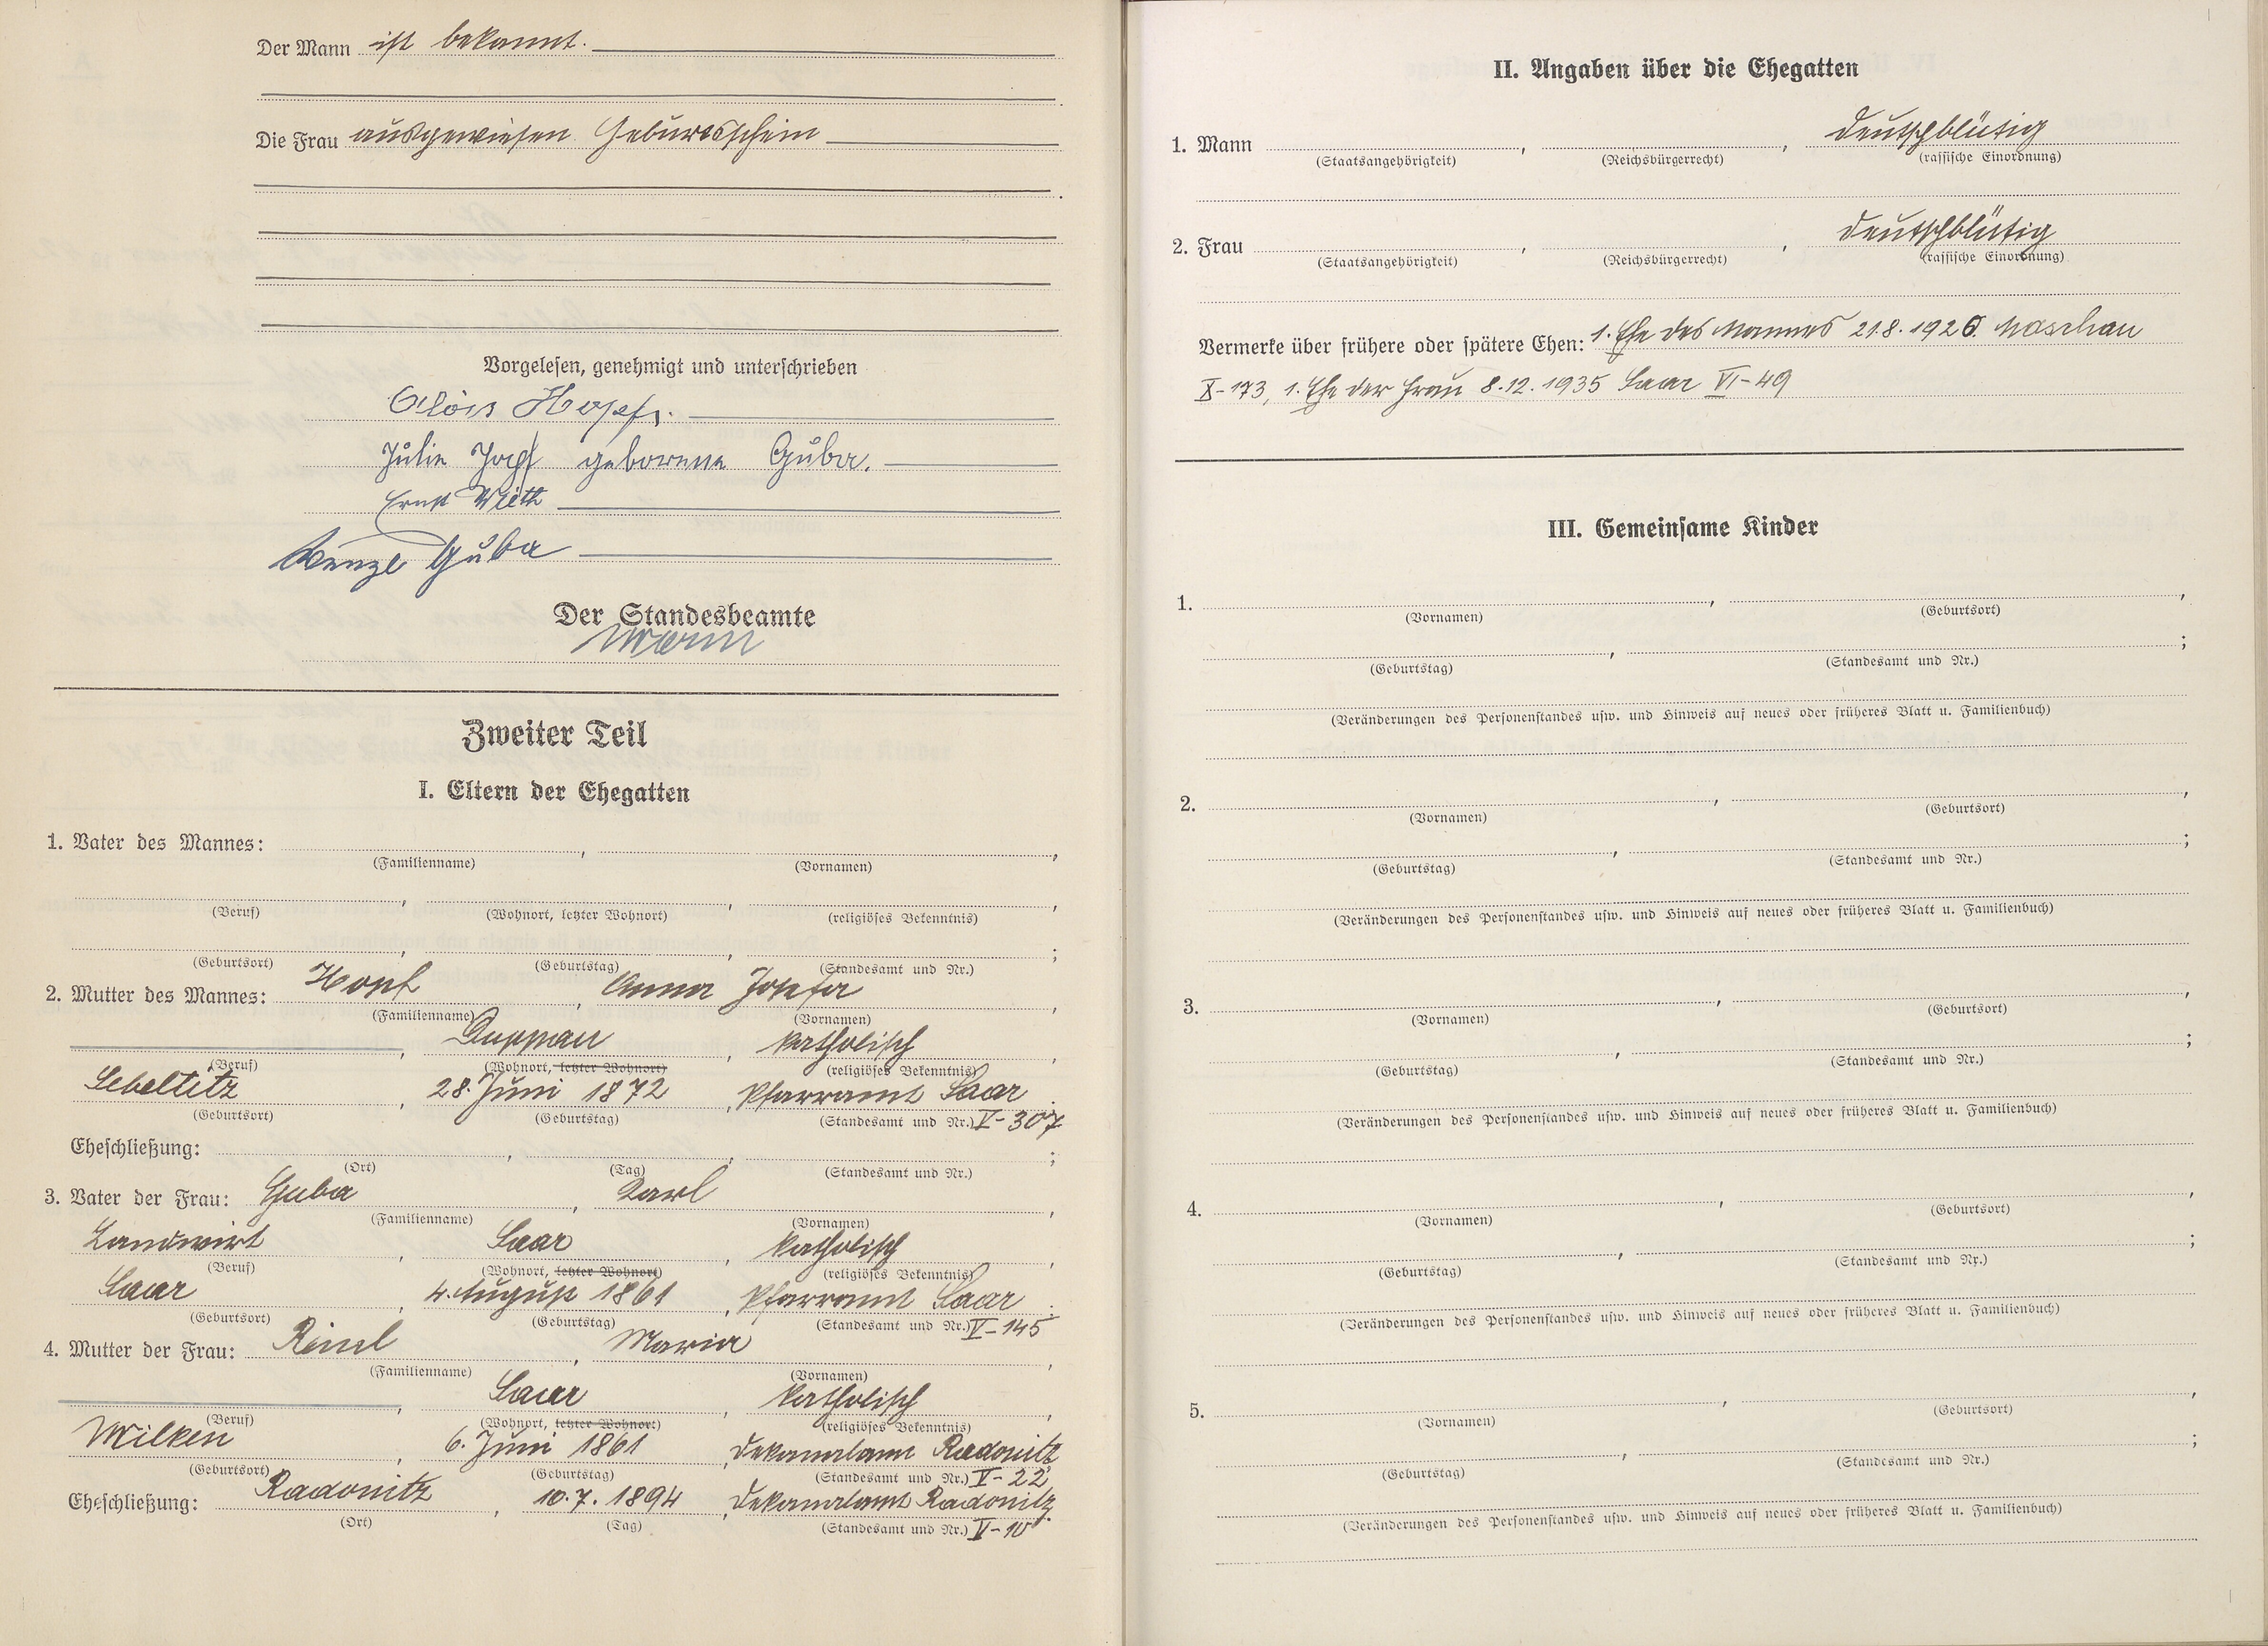 Der Mann ist bekannt.
Die Frau ausgewiesen Geburtsschein
Vorgelesen, genehmigt und unterschrieben
Alois Hopf.
Julie Hopf geborene Guba.
Ernst Wieth
Wenzl Guba
Der Standesbeamte
Zweiter Teil
I. Eltern der Ehegatten
1. Vater des Mannes:
(Familienname) (Vornamen)
(Beruf) (Wohnort, letzter Wohnort) (religiöses Bekenntnis)
(Geburtsort) (Geburtstag) (Standesamt und Nr.)
2. Mutter des Mannes: Hopf, Anna Josefa
(Familienname) (Vornamen)
Duppau, katholisch
(Beruf) (Wohnort, letzter Wohnort) (religiöses Bekenntnis)
Sebeltitz, 28. Juni 1872, Pfarramt Saar
(Geburtsort) (Geburtstag) (Standesamt und Nr.) V-307
Eheschließung:
(Ort) (Tag) (Standesamt und Nr.)
3. Vater der Frau: Guba, Karl
(Familienname) (Vornamen)
Landwirt, Saar, katholisch
(Beruf) (Wohnort, letzter Wohnort) (religiöses Bekenntnis)
Saar, 4. August 1861, Pfarramt Saar
(Geburtsort) (Geburtstag) (Standesamt und Nr.) V-145
4. Mutter der Frau: Maria
(Familienname) (Vornamen)
Saar, katholisch
(Beruf) (Wohnort, letzter Wohnort) (religiöses Bekenntnis)
Wilken, 6. Juni 1861, Dekanalamt Radonitz
(Geburtsort) (Geburtstag) (Standesamt und Nr.) V-22
Eheschließung: Radonitz, 10.7.1894, Dekanalamt Radonitz
(Ort) (Tag) (Standesamt und Nr.) V-10
II. Angaben über die Ehegatten
1. Mann deutschblütig
(Staatsangehörigkeit) (Reichsbürgerrecht) (rassische Einordnung)
2. Frau deutschblütig
(Staatsangehörigkeit) (Reichsbürgerrecht) (rassische Einordnung)
Vermerke über frühere oder spätere Ehen: 1. Ehe des Mannes 21.8.1926. Maschau
X-173, 1. Ehe der Frau 8.12.1935 Saar VI-49
III. Gemeinsame Kinder
1.
(Vornamen) (Geburtsort)
(Geburtstag) (Standesamt und Nr.)
(Veränderungen des Personenstandes usw. und Hinweis auf neues oder früheres Blatt u. Familienbuch)
2.
(Vornamen) (Geburtsort)
(Geburtstag) (Standesamt und Nr.)
(Veränderungen des Personenstandes usw. und Hinweis auf neues oder früheres Blatt u. Familienbuch)
3.
(Vornamen) (Geburtsort)
(Geburtstag) (Standesamt und Nr.)
(Veränderungen des Personenstandes usw. und Hinweis auf neues oder früheres Blatt u. Familienbuch)
4.
(Vornamen) (Geburtsort)
(Geburtstag) (Standesamt und Nr.)
(Veränderungen des Personenstandes usw. und Hinweis auf neues oder früheres Blatt u. Familienbuch)
5.
(Vornamen) (Geburtsort)
(Geburtstag) (Standesamt und Nr.)
(Veränderungen des Personenstandes usw. und Hinweis auf neues oder früheres Blatt u. Familienbuch)